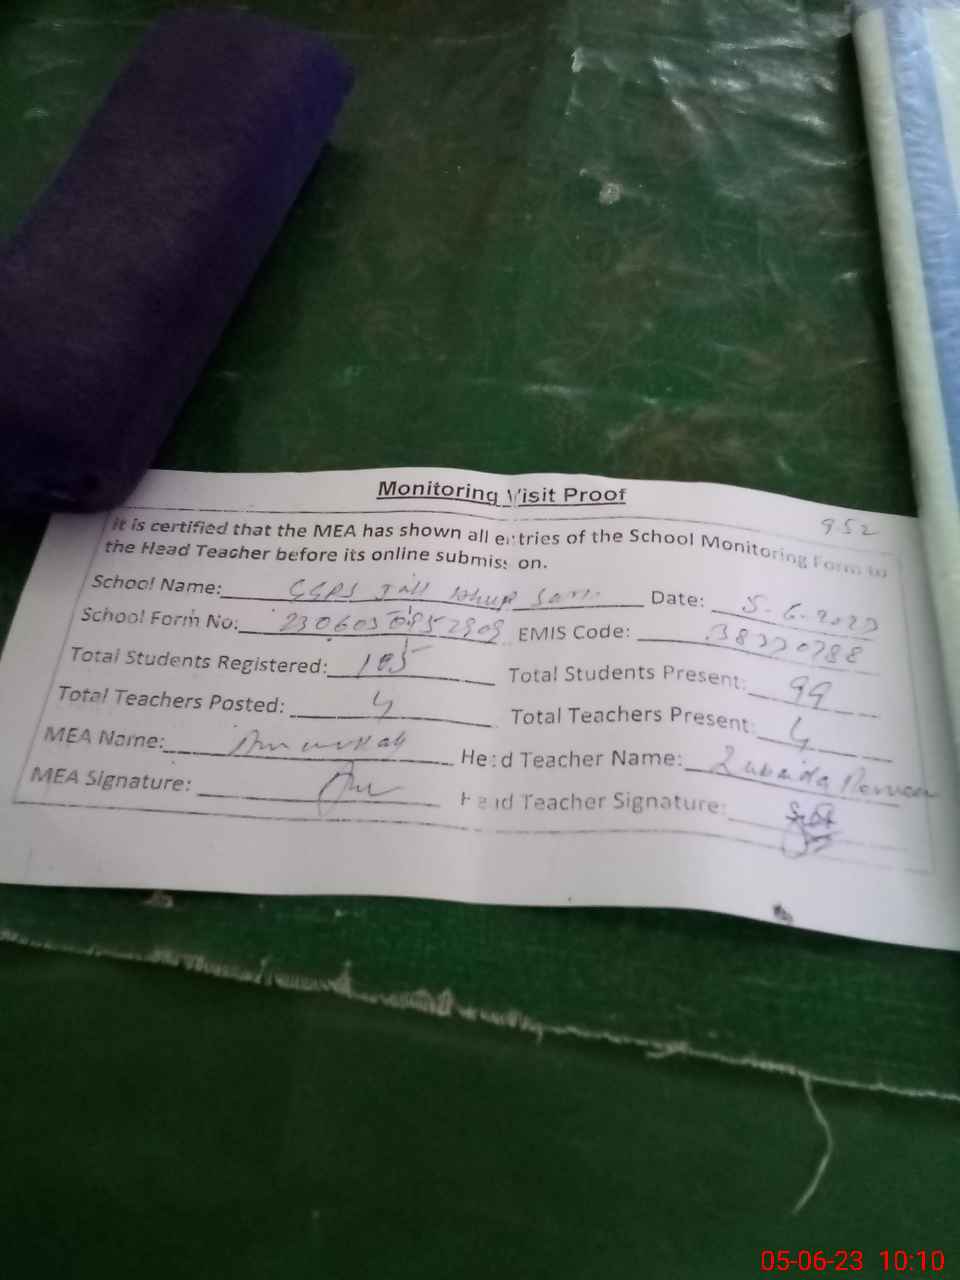 Monitoring Visit Proof
9.52
It is certified that the MEA has shown all entries of the School Monitoring Form to
the Head Teacher before its online submission.
School Name: GGPS Date: 5.6.2023
School Form No: EMIS Code: 38320788
Total Students Registered: 105 Total Students Present: 99
Total Teachers Posted: 4 Total Teachers Present: 4
MEA Name: Head Teacher Name: Zubaida
MEA Signature: Head Teacher Signature:
05-06-23 10:10